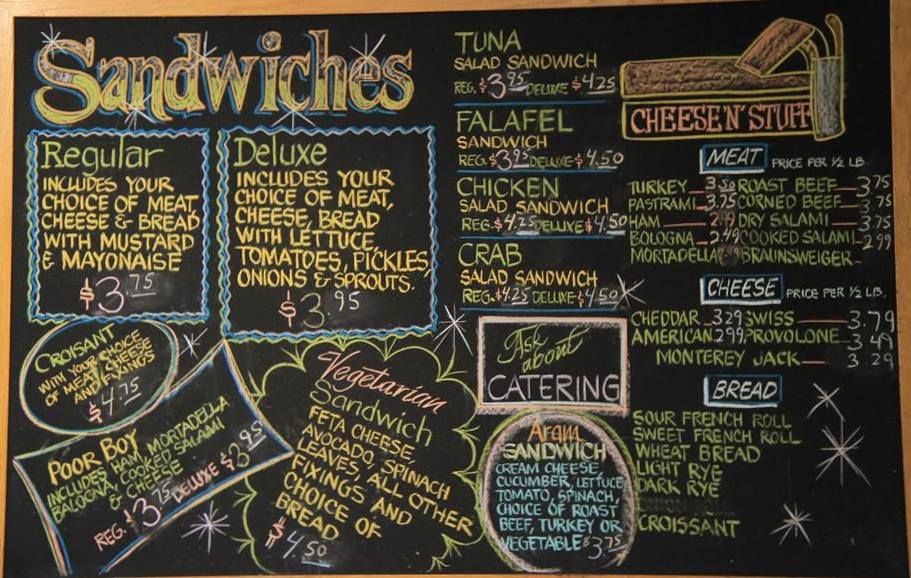 Sandwiches
Regular
INCLUDES YOUR
CHOICE OF MEAT,
CHEESE & BREAD
WITH MUSTARD
& MAYONAISE
$3.75
Deluxe
INCLUDES YOUR
CHOICE OF MEAT,
CHEESE, BREAD
WITH LETTUCE,
TOMATOES, PICKLES,
ONIONS & SPROUTS.
$3.95
CROISANT
WITH YOUR CHOICE
OF MEAT, CHEESE
AND FIXINGS
$4.75
POOR BOY
INCLUDES HAM, MORTADELLA
BALOGNA, COOKED SALAMI
& CHEESE
REG. $3.75 DELUXE $3.95
Vegetarian
Sandwich
FETA CHEESE
AVOCADO, SPINACH
LEAVES, ALL OTHER
FIXINGS AND
CHOICE OF
BREAD
$4.50
TUNA
SALAD SANDWICH
REG. $3.95 DELUXE $4.25
FALAFEL
SANDWICH
REG. $3.95 DELUXE $4.50
CHICKEN
SALAD SANDWICH
REG. $4.25 DELUXE $4.50
CRAB
SALAD SANDWICH
REG. $4.25 DELUXE $4.50
Ask
about
CATERING
Aram
SANDWICH
CREAM CHEESE,
CUCUMBER, LETTUCE
TOMATO, SPINACH,
CHOICE OF ROAST
BEEF, TURKEY OR
VEGETABLE $3.75
CHEESE 'N' STUFF
MEAT PRICE PER 1/2 LB.
TURKEY 3.50 ROAST BEEF 3.75
PASTRAMI 3.75 CORNED BEEF 3.75
HAM DRY SALAMI 3.75
BOLOGNA 2.49 COOKED SALAMI 2.99
MORTADELLA BRAUNSWEIGER
CHEESE PRICE PER 1/2 LB.
CHEDDAR 3.29 SWISS 3.79
AMERICAN 2.99 PROVOLONE 3.49
MONTEREY JACK 3.29
BREAD
SOUR FRENCH ROLL
SWEET FRENCH ROLL
WHEAT BREAD
LIGHT RYE
DARK RYE
CROISSANT